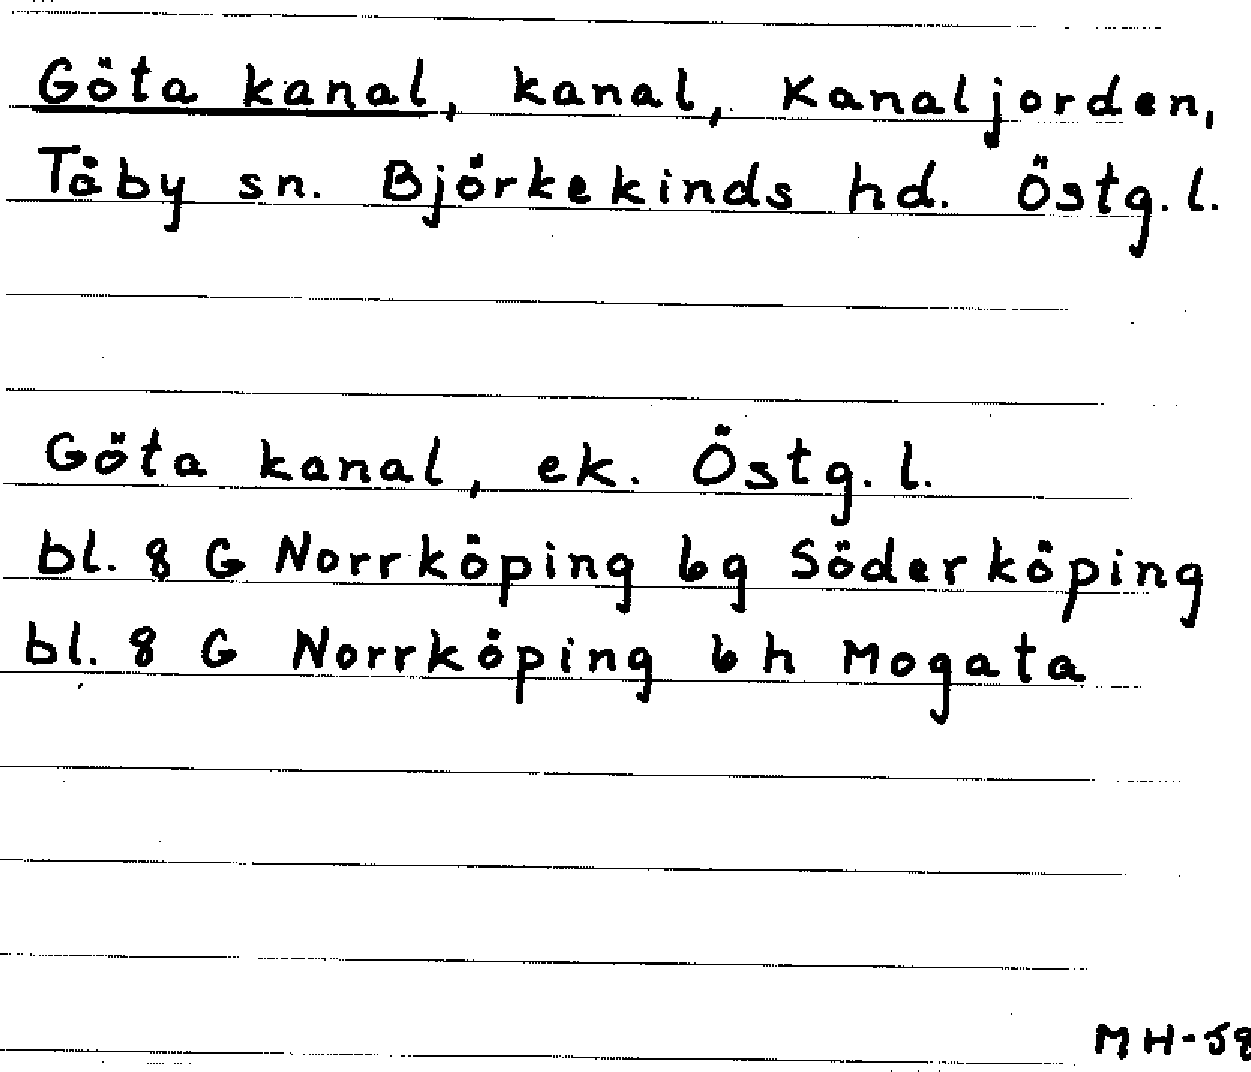 Göta kanal, kanal, Kanaljorden,
Tåby sn. Björkekinds hd. Östg. l.
Göta kanal, ek. Östg. l.
bl. 8 G Norrköping 6g Söderköping
bl. 8 G Norrköping 6h Mogata